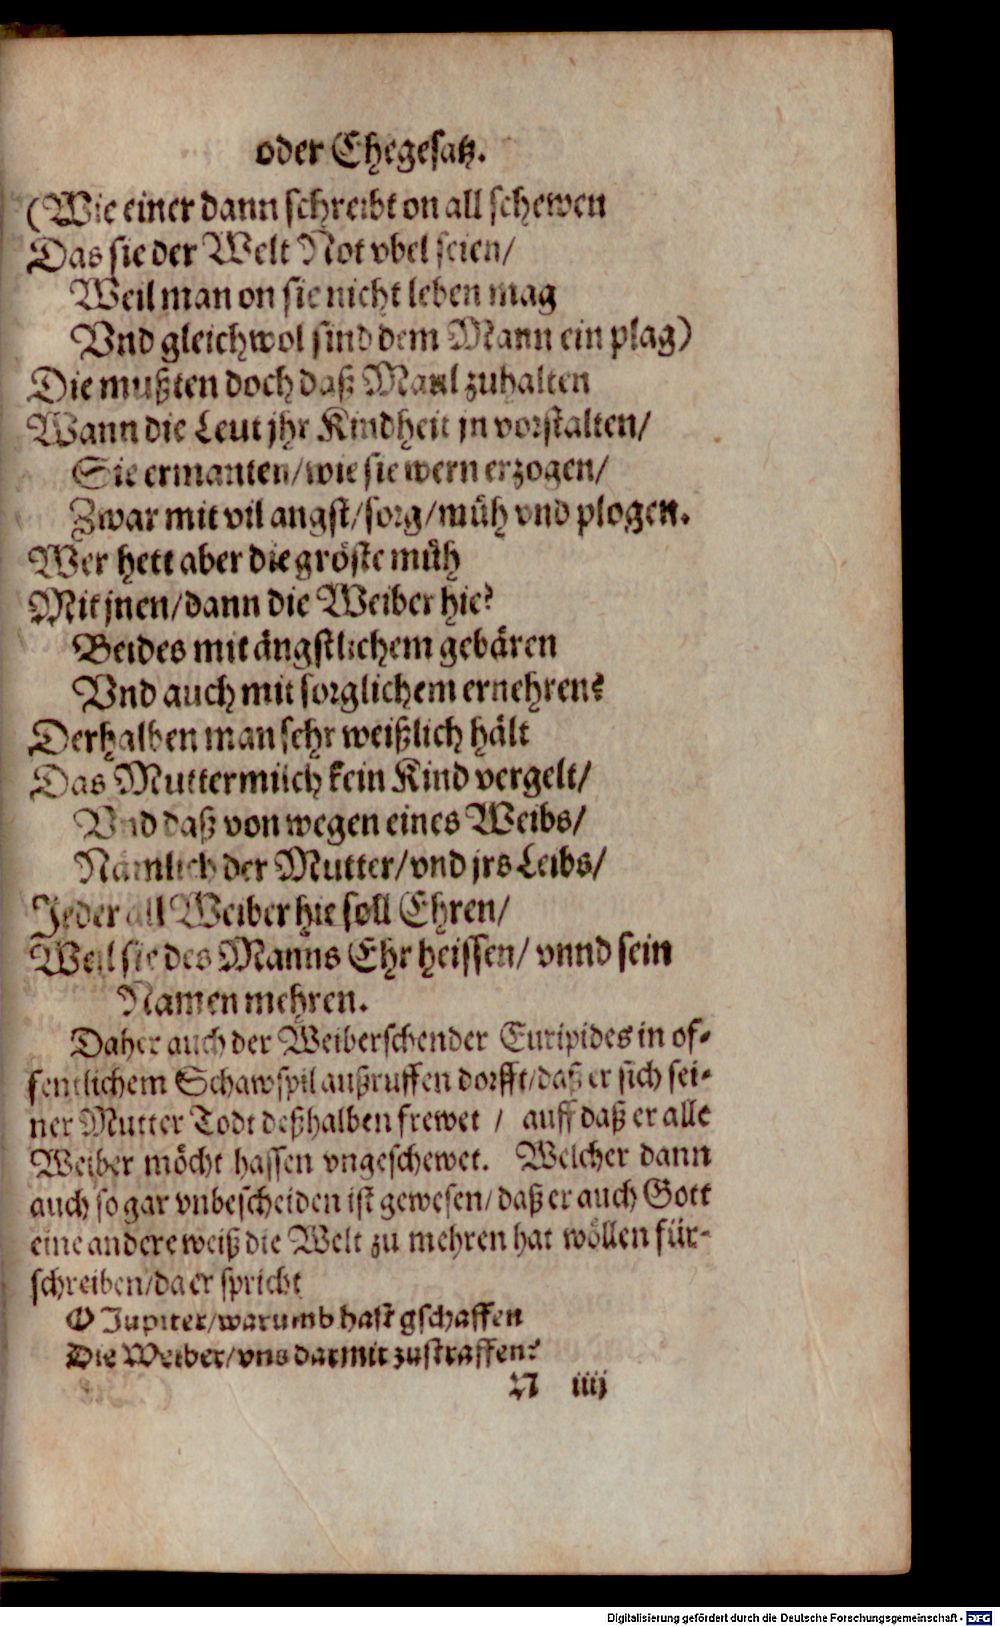 oder Ehegesatz.
(Wie einer dann schreibt on all schewen
Das sie der Welt Not vbel seien/
Weil man on sie nicht leben mag
Vnd gleichwol sind dem Mann ein plag)
Die mußten doch daß Maul zuhalten
Wann die Leut jhr Kindheit jn vorstalten/
Sie ermanten/wie sie wern erzogen/
Zwar mit vil angst/sorg/müh vnd plogen.
Wer hett aber die gröste müh
Mit jnen/dann die Weiber hie?
Beides mit ängstlichem gebären
Vnd auch mit sorglichem ernehren?
Derhalben man sehr weißlich hält
Das Muttermilch kein Kind vergelt/
Vnd daß von wegen eines Weibs/
Nämlich der Mutter/vnd jrs Leibs/
Jeder all Weiber hie soll Ehren/
Weil sie des Manns Ehr heissen/ vnnd sein
Namen mehren.
Daher auch der Weiberschender Euripides in of-
fentlichem Schawspil außruffen dorfft/daß er sich sei-
ner Mutter Todt deßhalben frewet / auff daß er alle
Weiber möcht hassen vngeschewet. Welcher dann
auch so gar vnbescheiden ist gewesen/daß er auch Gott
eine andere weiß die Welt zu mehren hat wöllen für-
schreiben/da er spricht
O Jupiter/warumb hast gschaffen
Die Weiber/vns darmit zustraffen?
N iiij
Digitalisierung gefördert durch die Deutsche Forschungsgemeinschaft - DFG